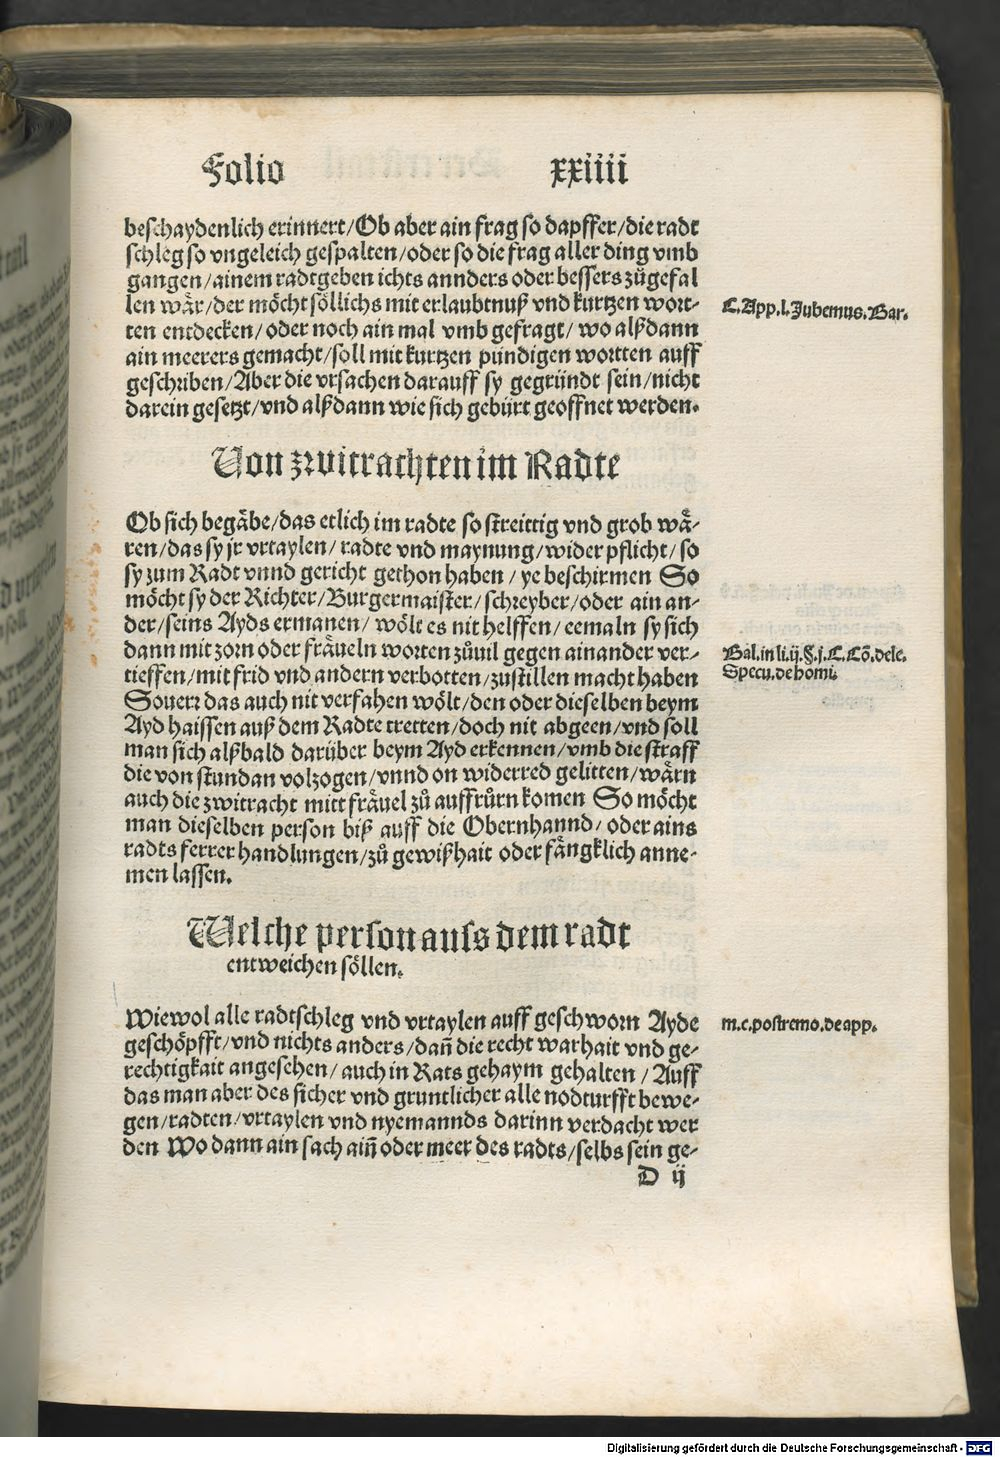 Folio xxiiii
beschaydenlich erinnert/Ob aber ain frag so dapffer/die radt
schleg so vngeleich gespalten/oder so die frag aller ding vmb
gangen/ainem radtgeben ichts annders oder bessers zůgefal
len wår/der möcht söllichs mit erlaubtnuß vnd kurtzen wort-
ten entdecken/oder noch ain mal vmb gefragt/wo alßdann
ain meerers gemacht/soll mit kurtzen pündigen wortten auff
geschriben/Aber die vrsachen darauff sy gegründt sein/nicht
darein gesetzt/vnd alßdann wie sich gebürt geöffnet werden.
C.App.l.Jubemus.Bar.
Von zwitrachten im Radte
Ob sich begåbe/das etlich im radte so streittig vnd grob wå-
ren/das sy jr vrtaylen/radte vnd maynung/wider pflicht/so
sy zum Radt vnnd gericht gethon haben/ye beschirmen So
möcht sy der Richter/Burgermaister/schreyber/oder ain an-
der/seins Ayds ermanen/wölt es nit helffen/eemaln sy sich
dann mit zorn oder fråueln worten zůuil gegen ainander ver-
tieffen/mit frid vnd andern verbotten/zustillen macht haben
Souerz das auch nit verfahen wölt/den oder dieselben beym
Ayd haissen auß dem Radte tretten/doch nit abgeen/vnd soll
man sich alßbald darüber beym Ayd erkennen/vmb die straff
die von stundan volzogen/vnnd on widerred gelitten/wårn
auch die zwitracht mitt fråuel zů auffrůrn komen So möcht
man dieselben person biß auff die Obernhannd/oder ains
radts ferrer handlungen/zů gewißhait oder fångklich anne-
men lassen.
Bal.in li.ij.§.j.C.Cō.dele.
Specu.de homi.
Welche person auss dem radt
entweichen söllen.
Wiewol alle radtschleg vnd vrtaylen auff geschworn Ayde
geschöpfft/vnd nichts anders/dañ die recht warhait vnd ge-
rechtigkait angesehen/auch in Rats gehaym gehalten/Auff
das man aber des sicher vnd gruntlicher alle nodturfft bewe-
gen/radten/vrtaylen vnd nyemannds darinn verdacht wer
den Wo dann ain sach aiñ oder meer des radts/selbs sein ge-
m.c.postremo.de app.
D ij
Digitalisierung gefördert durch die Deutsche Forschungsgemeinschaft - DFG